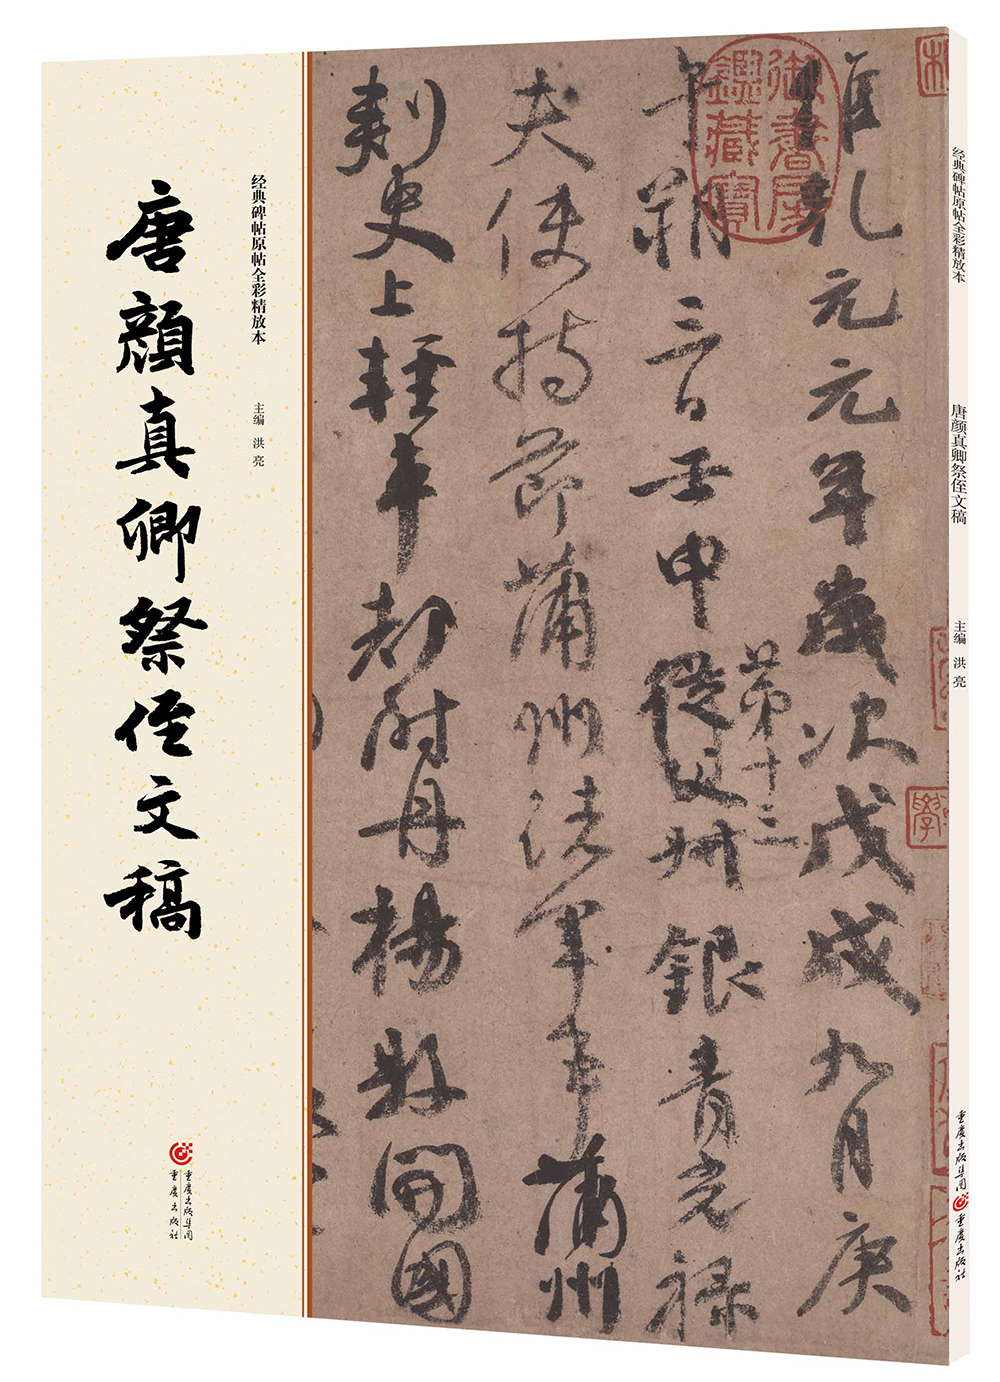 经典碑帖原帖全彩精放本
主编 洪亮
唐顏真卿祭侄文稿
重庆出版集团
重庆出版社
維乾元元年歲次戊戌九月庚
午朔三日壬申第十三從父叔銀青光祿
夫使持節蒲州諸軍事蒲州
刺史上輕車都尉丹楊縣開國
御書房鑑藏寶
经典碑帖原帖全彩精放本
唐颜真卿祭侄文稿
主编 洪亮
重庆出版集团
重庆出版社